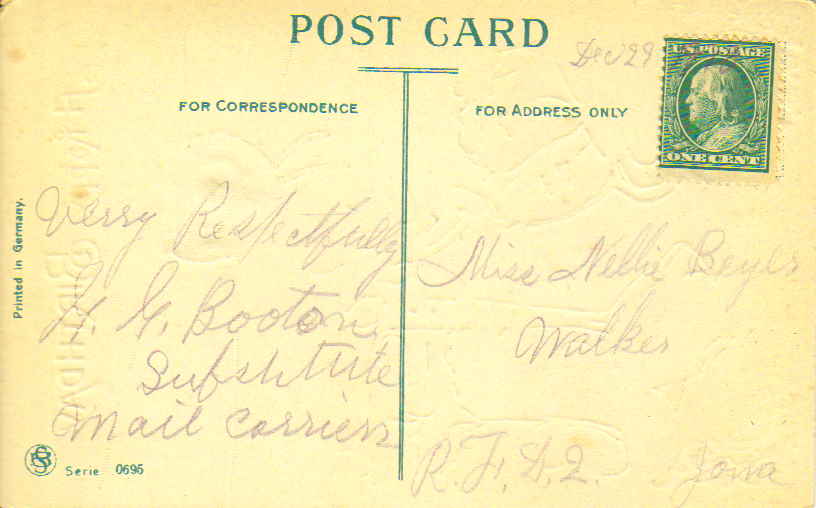 POST CARD
Dec 29
U.S. POSTAGE
ONE CENT
FOR CORRESPONDENCE
FOR ADDRESS ONLY
Verry Respectfully
H. G. Booton
Substitute
mail carrier
Miss Nellie Beyls
Walker
R. F. D. 2. Iowa
Printed in Germany.
Serie 0695